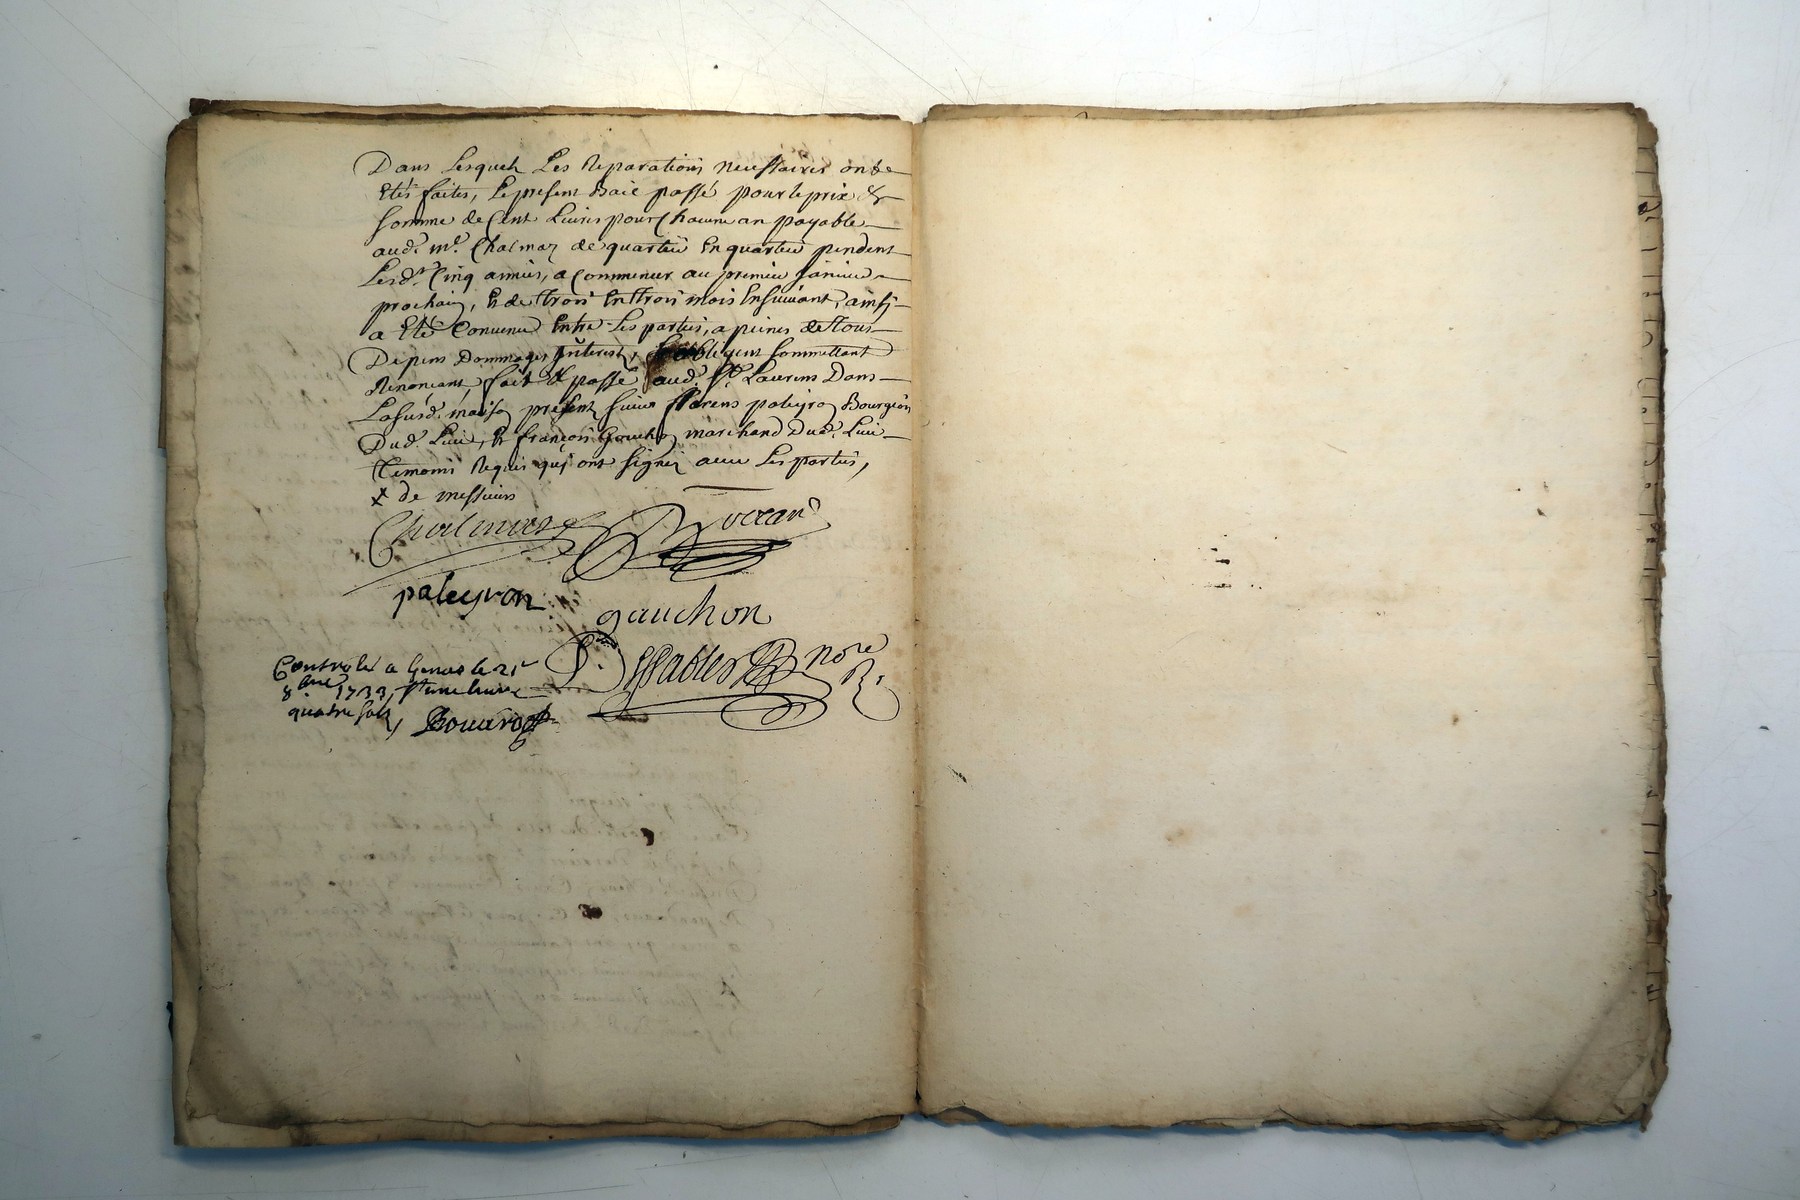 Dans Lesquels Les Reparations necessaires ont
Etés faites, Le present Bail passé pour le prix &
Somme de Cent Livres pour Chacune an payable
aud. mr. Chalmas de quartier En quartier pendent
Lesd. Cinq années, a Commencer au premier Janvier
prochain, Et de trois En trois mois Ensuivant, ainsy
a Eté Convenu Entre Les parties, a peines de tous
Depens Dommages Interest, obligent sommettant
Renonçant, fait & passé aud. St. Laurens Dans
La susd. maison present sieur florens paleyron Bourgeois
Dud. Lieu, Et françois Gauchon marchand Dud. Lieu
temoins Requis quy ont signez avec Les parties,
x de messieurs
Chalmas
paleyron
gauchon
nore
R.
Controlé a le 21e
8bre 1733,
quatre sols,